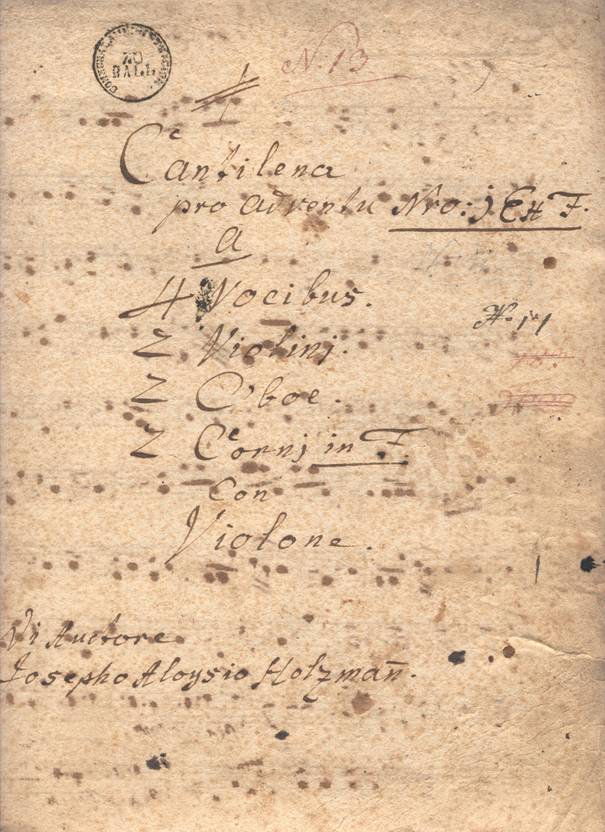 ZU
HALL
N. 13
Cantilena
pro adventu Nro: j Ex F.
a
4 Vocibus.
2 Violinj.
2 Oboe.
2 Cornj in F.
Con
Violone.
Auctore
Josepho Aloysio Holzman̄.